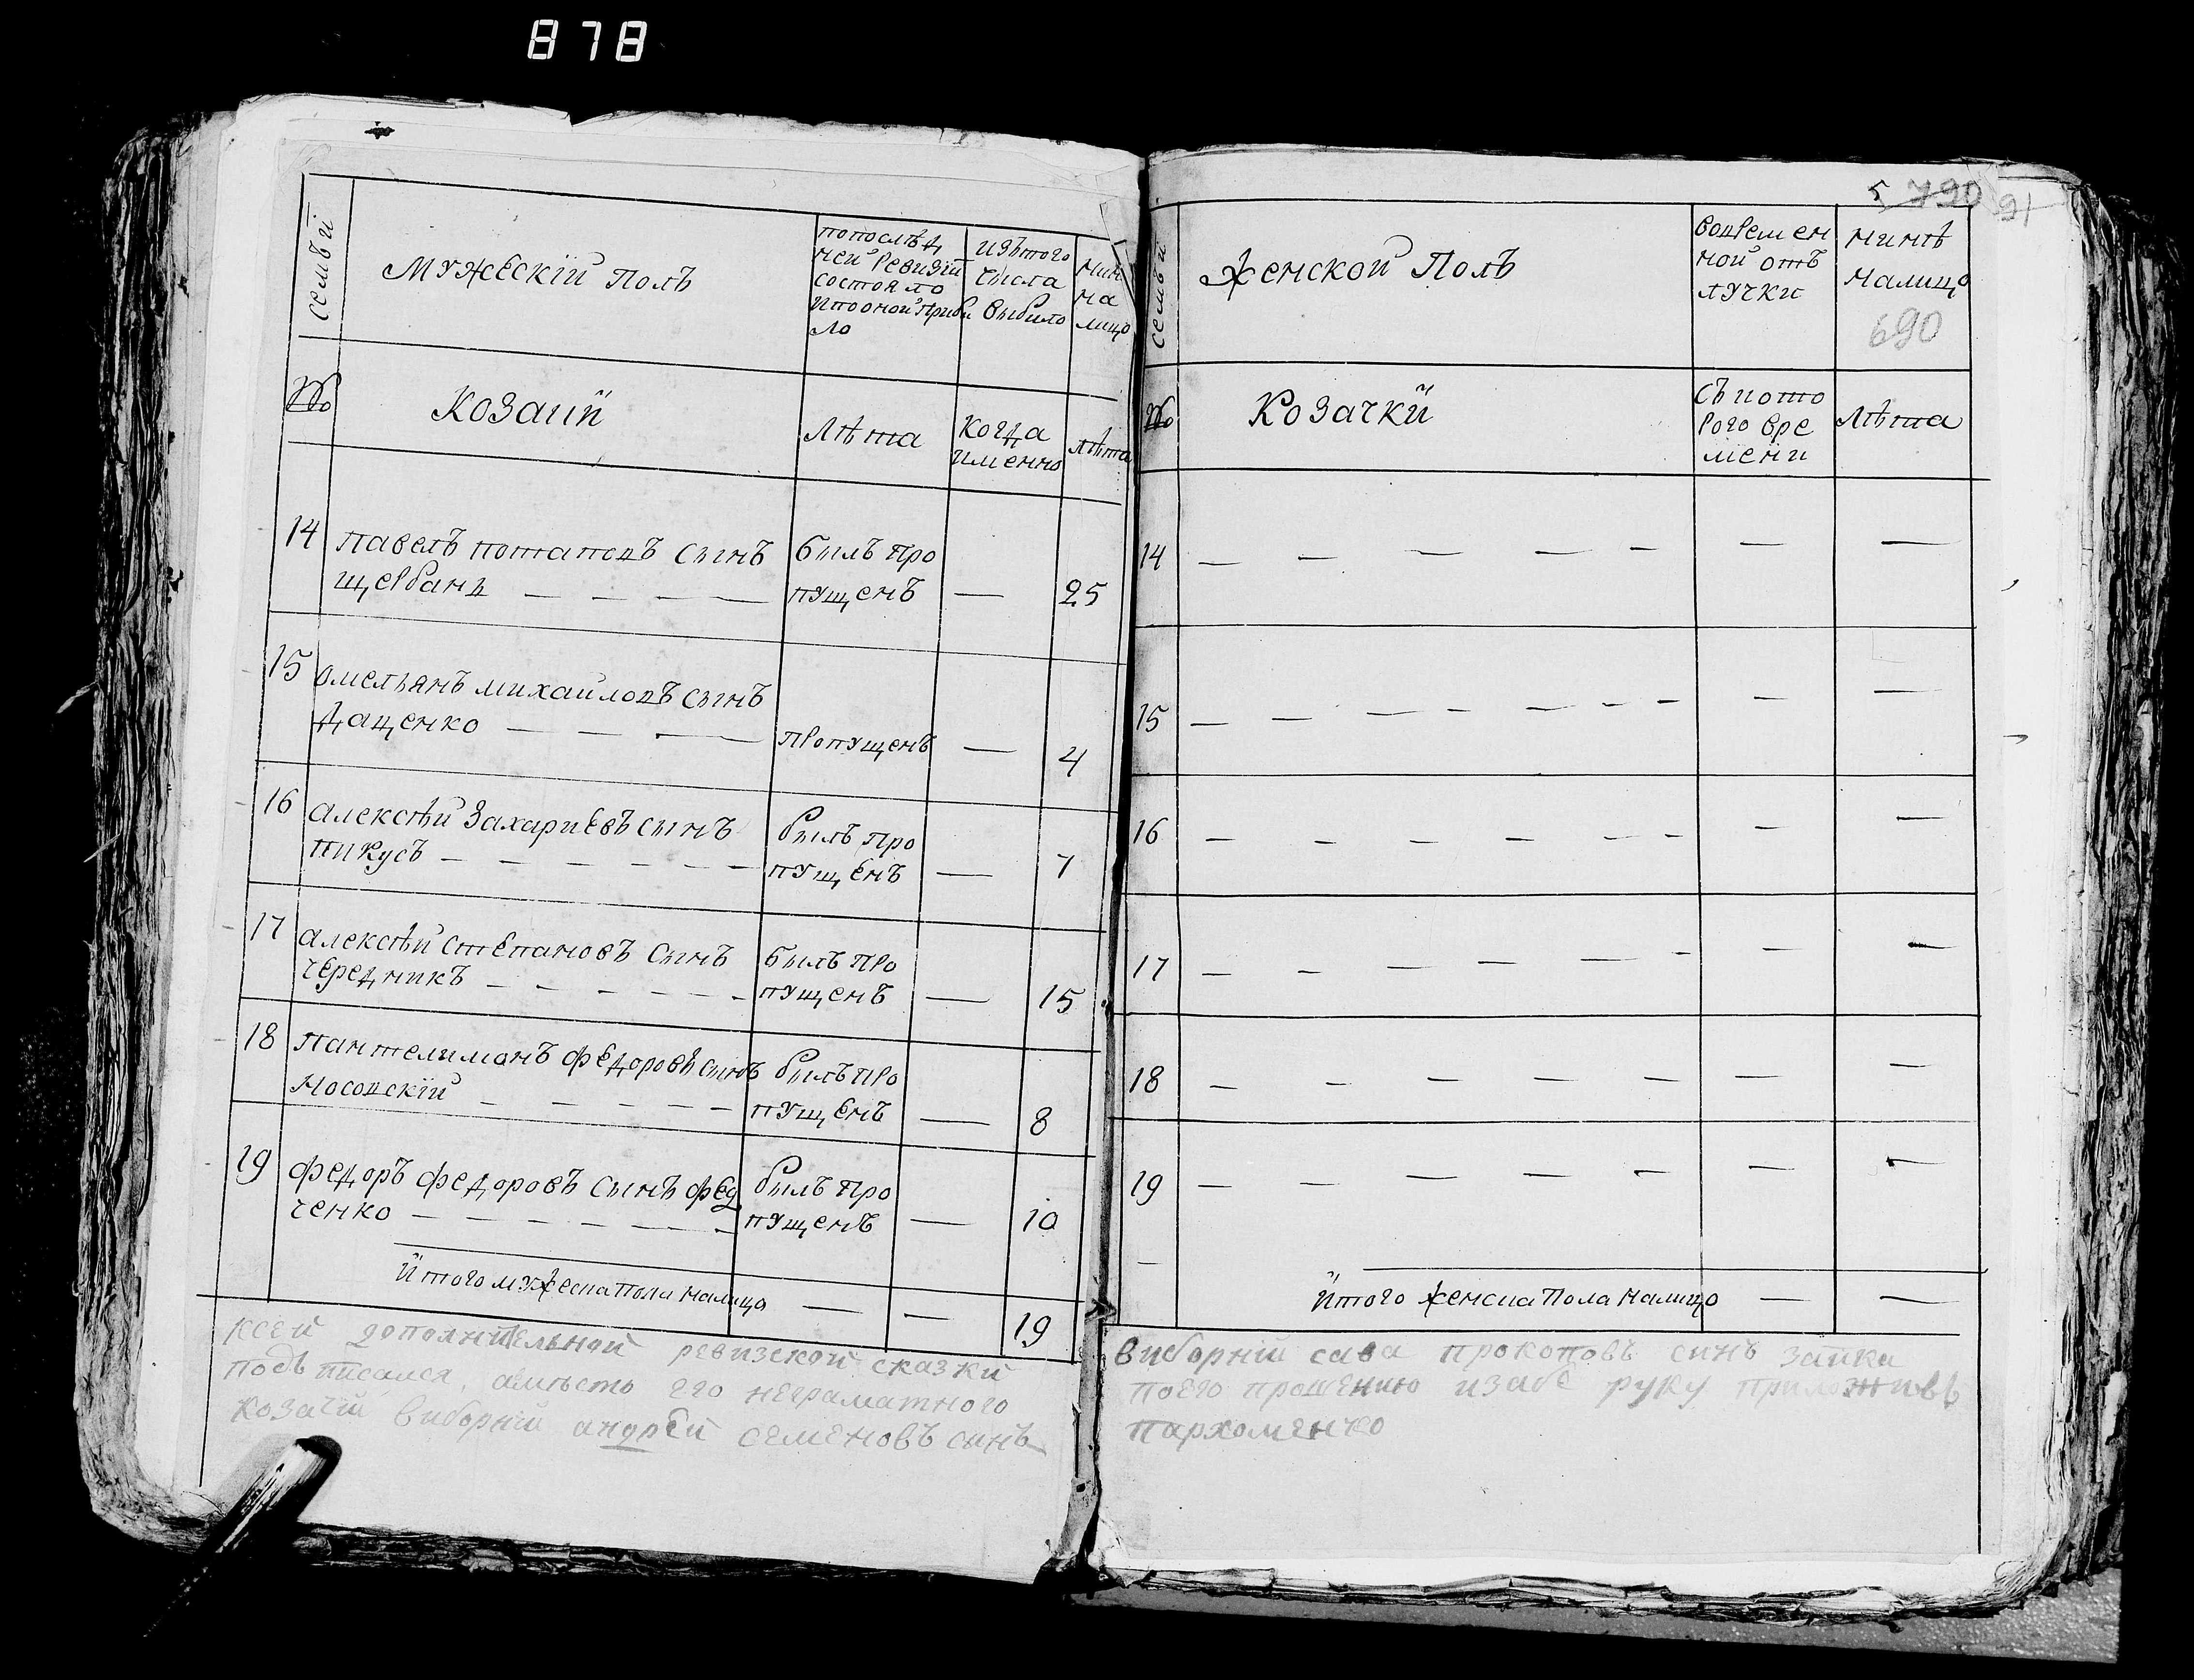 878
семьи
Мужескїй Полъ
попослѣд
ней ревизїи
состояло
ипооной прибы
ло
изътого
числа
выбило
нинѣ
на
лицо
№
Козаки
Лѣта
когда
именно
лѣта
14
павелъ потаповъ сынъ
щербань — — — —
былъ про
пущенъ
—
25
15
омельянъ михайловъ сынъ
даценко — — —
пропущенъ
—
4
16
алексѣй захариевъ сынъ
пикусъ — — — — — —
былъ про
пущенъ
—
7
17
алексѣй степановъ сынъ
чередникъ — — — — —
былъ про
пущенъ
—
15
18
пантелимонъ федоровъ сынъ
носовскїй — — — — —
былъ про
пущенъ
—
8
19
федоръ федоровъ сынъ фед
ченко — — — — — —
былъ про
пущенъ
—
10
Итого мужеска пола налицо — —
19
ксей дополнительной ревизской сказки
подъписался, вместо его неграматного
козачий виборнїй андрей семеновъ синъ
5 790 91
семьи
Женской Полъ
вовремен
ной отъ
лучки
нинѣ
налицо
690
№
Козачки
съ кото
рого вре
мени
Лѣта
14 — — — — — — —
15 — — — — — — — — —
16 — — — — — — — —
17 — — — — — — — —
18 — — — — — — —
19 — — — — — — —
—
Итого женска пола налицо — —
виборнїй сава прокоповъ синъ заика
поего прошению изабе руку приложивъ
пархоменко